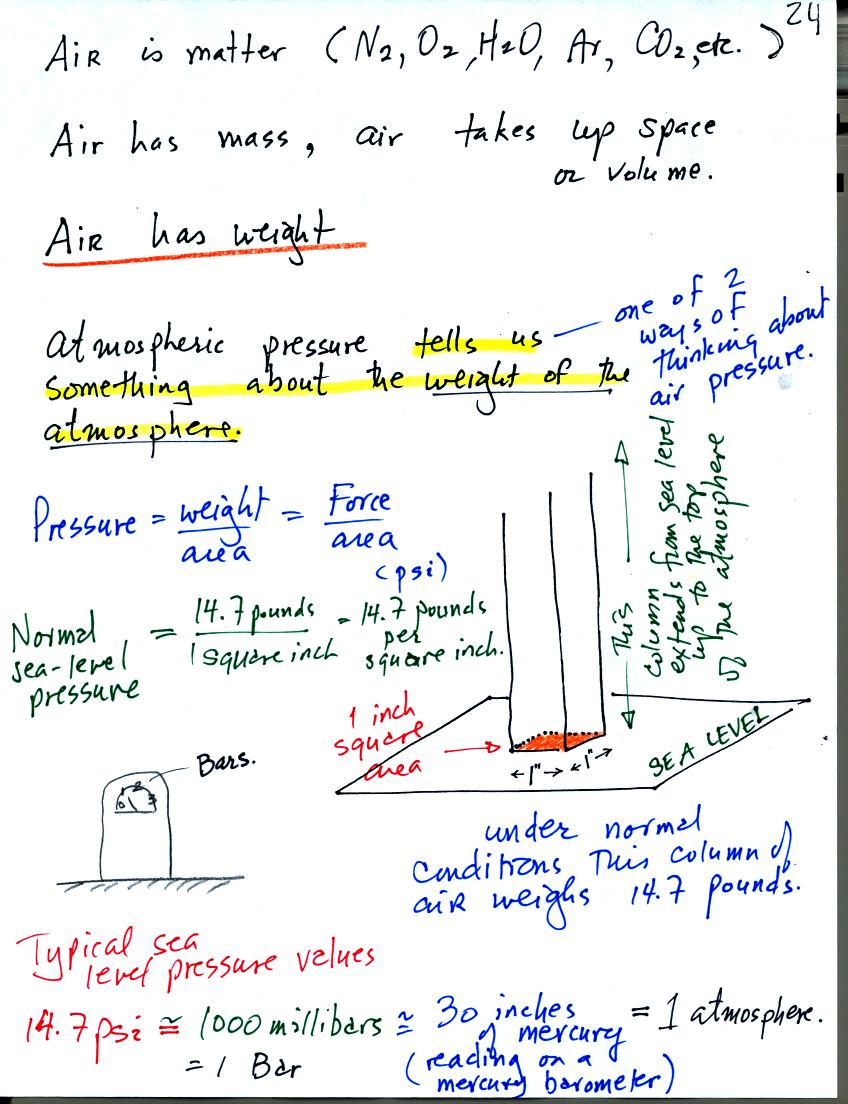 24
Air is matter (N2, O2, H2O, Ar, CO2, etc.)
Air has mass, air takes up space
or volume.
Air has weight
atmospheric pressure tells us
something about the weight of the
atmosphere.
one of 2
ways of
thinking about
air pressure.
Pressure = weight/area = Force/area
(psi)
Normal sea-level pressure = 14.7 pounds/1 square inch = 14.7 pounds per square inch.
This
column
extends from sea level
up to the top
of the atmosphere
1 inch
square
area
←1"→ ←1"→
SEA LEVEL
Bars.
0 1 2 3
under normal
conditions This column of
air weighs 14.7 pounds.
Typical sea
level pressure values
14.7 psi ≅ 1000 millibars ≅ 30 inches = 1 atmosphere.
of mercury
= 1 Bar
(reading on a
mercury barometer)